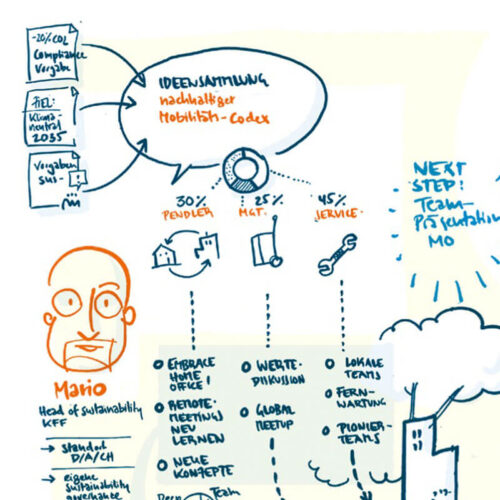 -20% CO2
Compliance
Vorgabe
ZIEL:
Klima-
neutral
2035
Vorgaben
SUS-
!
IDEENSAMMLUNG
nachhaltiger
Mobilitäts-Codex
30% 25% 45%
PENDLER MGT. SERVICE
NEXT
STEP!
Team-
Präsentation
MO
Mario
Head of sustainability
KFF
→ Standort
D/A/CH
→ eigene
sustainability
governance
EMBRACE
HOME
OFFICE!
REMOTE-
MEETINGS
NEU
LERNEN
NEUE
KONZEPTE
WERTE-
DISKUSSION
GLOBAL
MEETUP
LOKALE
TEAMS
FERN-
WARTUNG
PIONIER-
TEAMS
Team